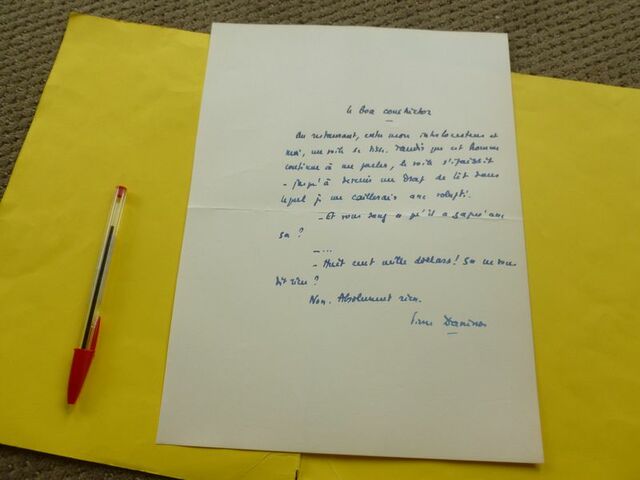 le Boa constrictor
Au restaurant, entre mon interlocuteur et
moi, un voile se tisse. Tandis que cet homme
continue à me parler, le voile s'épaissit
- jusqu'à devenir un drap de lit dans
lequel je me avec volupté.
- Et vous savez ce qu'il a gagné avec
ça ?
- ...
- Huit cent mille dollars ! Ça ne vous
dit rien ?
Non. Absolument rien.
Pierre Daninos